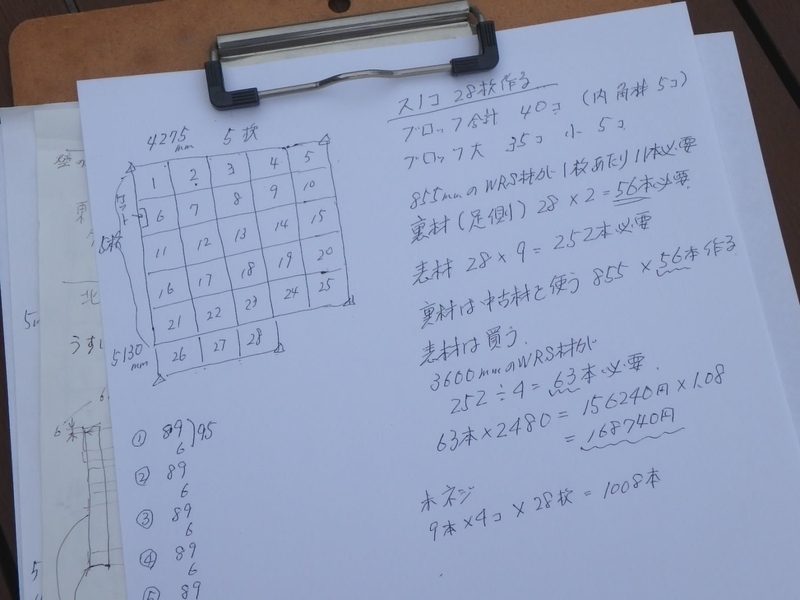 スノコ 28枚作る
ブロック合計 40コ (内角材 5コ)
ブロック大 35コ 小 5コ
855mmのWRS材が1枚あたり11本必要
裏材(足側) 28×2=56本必要
表材 28×9=252本必要
裏材は中古材を使う 855×56本作る
表材は買う.
3600mmのWRS材が
252÷4=63本必要.
63本×2480=156240円×1.08
=168740円
木ネジ
9本×4コ×28枚=1008本
4275
mm
5枚
1 2 3 4 5
6 7 8 9 10
11 12 13 14 15
16 17 18 19 20
21 22 23 24 25
26 27 28
5130
mm
① 89
6
)95
② 89
6
③ 89
6
④ 89
6
⑤ 89
北
うすい